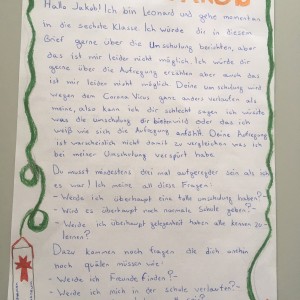 JAKOB
Hallo Jakob! Ich bin Leonard und gehe momentan
In die sechste Klasse Ich würde dir in diesem
Brief gerne über die Umschulung berichten, aber
das ist mir leider nicht möglich. Ich würde dir
gerne über die Aufregung erzählen aber auch das
ist mir leider nicht möglich Deine umschulung wird
wegen dem Corona Virus ganz anders verlaufen als
meine, also kann ich dir schlecht sagen ich wüsste
was die umschulung dir bieten wird oder das ich
weiß wie sich die Aufregung anfühlt. Deine Aufregung
ist warscheinlich nicht damit zu vergleichen was ich
bei meiner Umschulung verspürt habe.
Du musst mindestens drei mal aufgeregter sein als ich
es war! Ich meine all diese Fragen!
- Werde ich überhaupt eine tolle umschulung haben?-
- Wird es überhaupt noch normale Schule geben?-
- Werde ich überhaupt gelegenheit haben alle kennen zu
lernen?
Dazu kommen noch fragen die dich ohnhin
noch quälen müssen wie:
- Werde ich Freunde finden?-
- Werde ich mich in der schule verlaufen?-